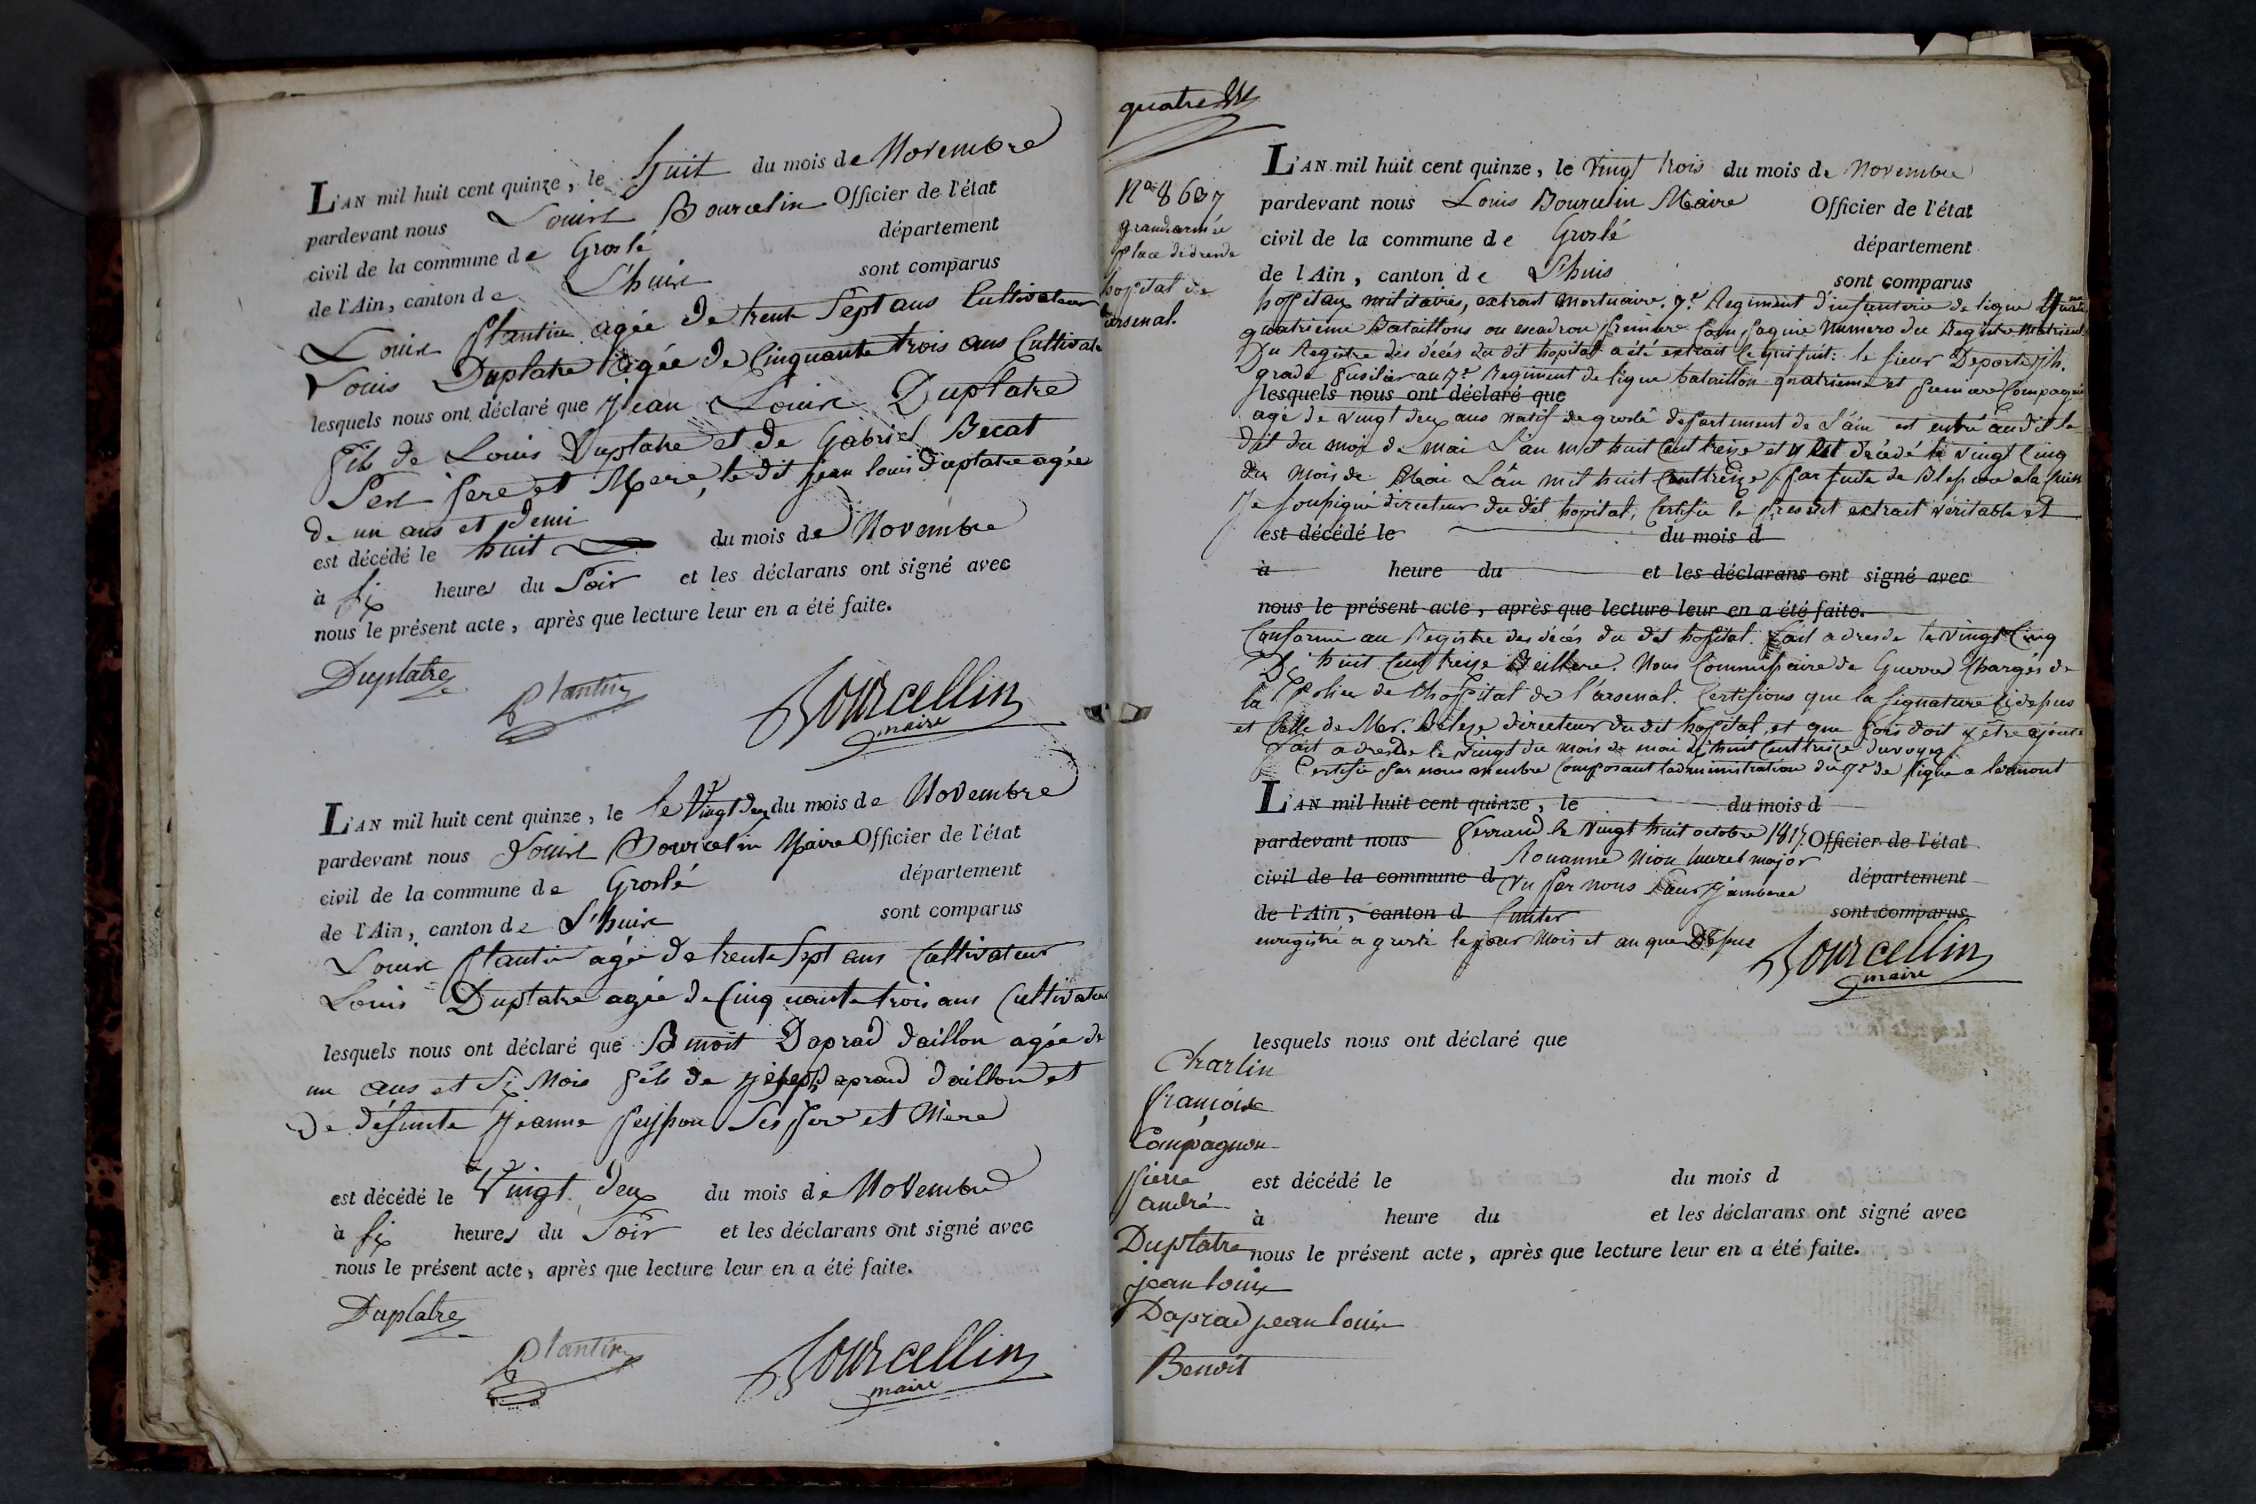 L'AN mil huit cent quinze, le huit du mois de Novembre
pardevant nous Louis Bourcelin Officier de l'état
civil de la commune de Groslé département
de l'Ain, canton de L'huis sont comparus
Louis plantin agée de trente Sept ans Cultivateur
Louis Duplatre agée de Cinquante trois ans Cultivate
lesquels nous ont déclaré que Jean Louis Duplatre
fils de Louis Duplatre et de Gabriel Becat
Ses pere et Mere, le dit jean louis duplatre agée
de un ans et demi
est décédé le huit du mois de Novembre
à six heures du Soir et les déclarans ont signé avec
nous le présent acte, après que lecture leur en a été faite.
Duplatre
Plantin
Bourcellin
maire
L'AN mil huit cent quinze, le le Vingt deux du mois de Novembre
pardevant nous Louis Bourcelin Maire Officier de l'état
civil de la commune de Groslé département
de l'Ain, canton de L'huis sont comparus
Louis plantin agée de trente Sept ans Cultivateur
Louis Duplatre agée de Cinquante trois ans Cultivateur
lesquels nous ont déclaré que Benoit Daprad daillon agée de
un ans et Six Mois fils de joseph daprad daillon et
de défunte Jeanne Ses pere et Mere
est décédé le Vingt deux du mois de Novembre
à six heures du Soir et les déclarans ont signé avec
nous le présent acte, après que lecture leur en a été faite.
Duplatre
Plantin
Bourcellin
maire
quatre
N° 8637
grande armée
place de dresde
hopital de
arsenal.
L'AN mil huit cent quinze, le vingt trois du mois de Novembre
pardevant nous Louis Bourcelin Maire Officier de l'état
civil de la commune de Groslé département
de l'Ain, canton de L'huis sont comparus
hopitaux militaires, extrait mortuaire. 7e Regiment d'infanterie de ligne
quatrieme Bataillons ou escadron premiere Compagnie Numero du Registre Matricul
Du Registre des décés du dit hopital a été extrait ce qui suit: le sieur Deporte jh.
grade fusilier au 7e Regiment de ligne bataillon quatrieme et premiere Compagnie
lesquels nous ont déclaré que
agé de vingt deux ans natif de groslé departement de l'ain est entré audit le
dit du mois de mai L'an mil huit Cent treize et y est décédé le vingt Cinq
du Mois de Mai L'an mil huit Cent treize par suite de
Je soussigné directeur du dit hopital, Certifie le present extrait véritable et
est décédé le du mois d
à heure du et les déclarans ont signé avec
nous le présent acte, après que lecture leur en a été faite.
Conforme au Registre des décés du dit hopital. fait a dresde le vingt Cinq
huit Cent treize. Nous Commissaire de Guerre Chargés de
la Police de l'hopital de l'arsenal. Certifions que la signature ci dessus
et Celle de Mr. directeur du dit hopital, et que fois doit y etre ajouté
fait a dresde le vingt du mois de mai huit Cent treize
Certifié par nous membre Composant l'administration du 7e de ligne a
L'AN mil huit cent quinze, le du mois d
pardevant nous ferrand le vingt huit octobre 1815. Officier de l'état
civil de la commune d Rouanne major département
vu par nous
de l'Ain, canton d sont comparus
enregistré a groslé le jour Mois et an que Dessus
Bourcellin
maire
lesquels nous ont déclaré que
Charlin
françoise
Compagnon
pierre
andré
est décédé le du mois d
à heure du et les déclarans ont signé avec
Duplatre
nous le présent acte, après que lecture leur en a été faite.
jean louis
Daprad jean louis
Benoit